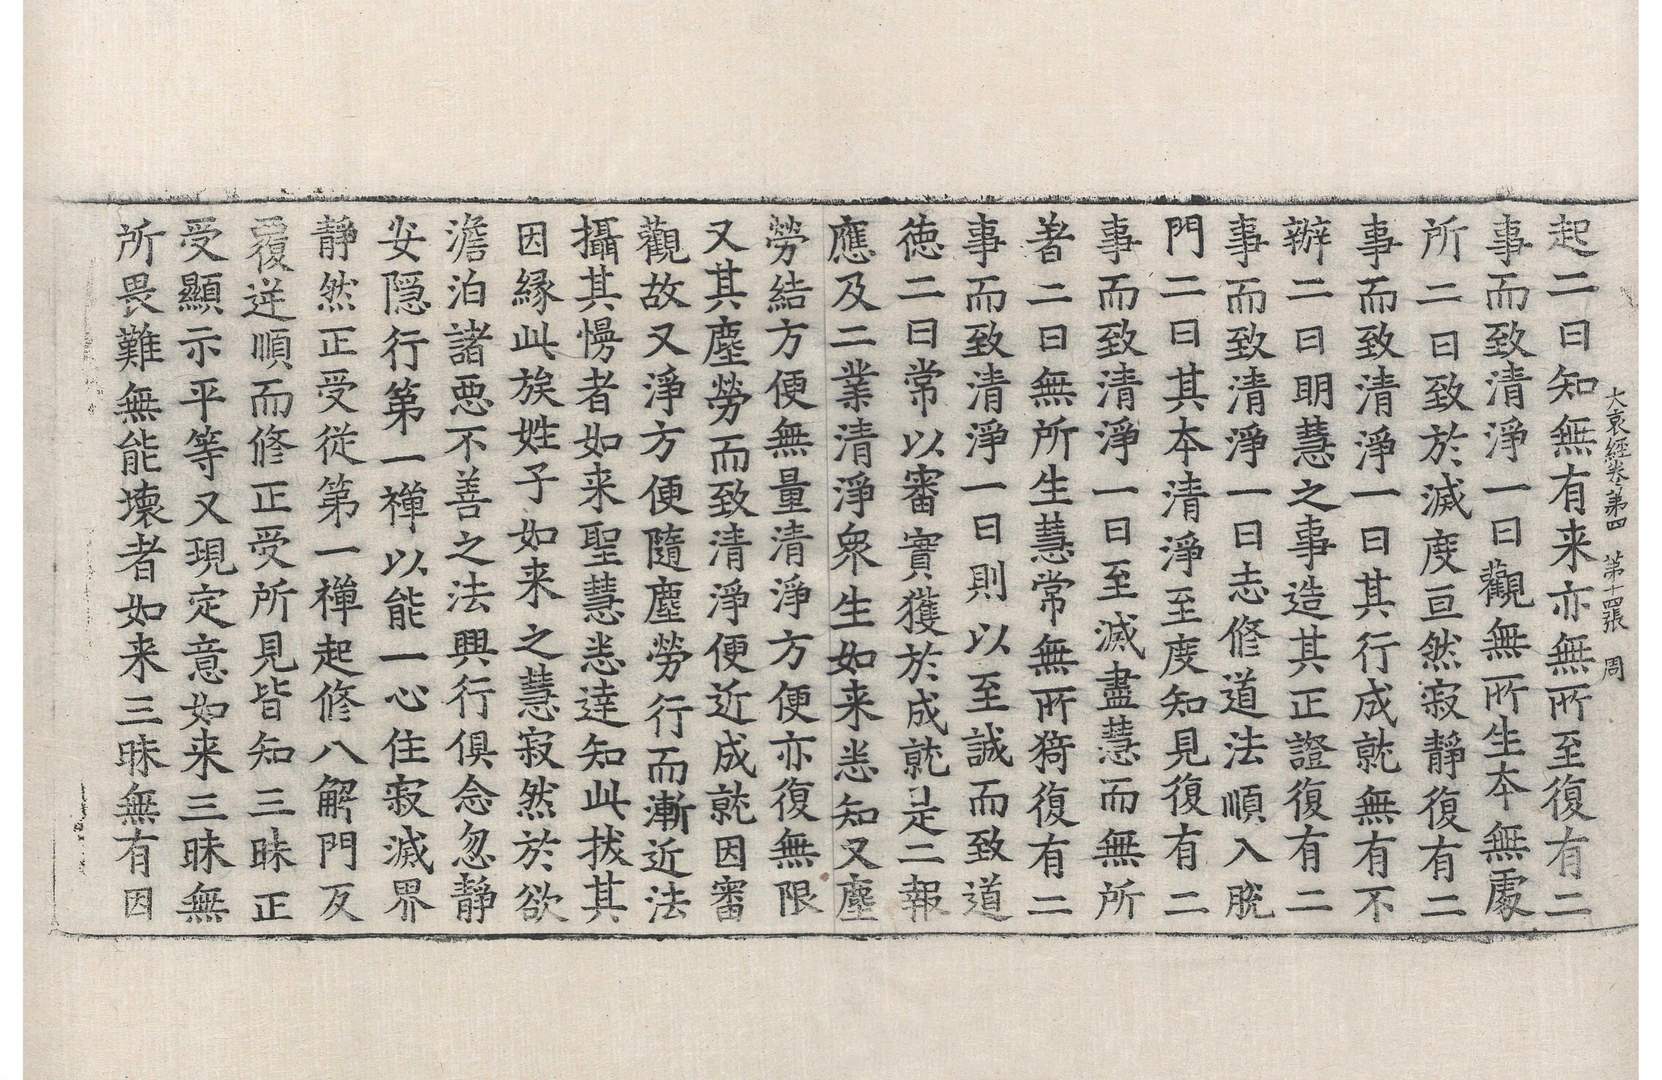 大哀經卷第四　第十四張　周
起二曰知無有来亦無所至復有二
事而致清淨一曰觀無所生本無處
所二曰致於滅度亘然寂靜復有二
事而致清淨一曰其行成就無有不
辦二曰明慧之事造其正證復有二
事而致清淨一曰志修道法順入脫
門二曰其本清淨至度知見復有二
事而致清淨一曰至滅盡慧而無所
著二曰無所生慧常無所猗復有二
事而致清淨一曰則以至誠而致道
德二曰常以審實獲於成就是二報
應及二業清淨眾生如来悉知又塵
勞結方便無量清淨方便亦復無限
又其塵勞而致清淨便近成就因審
觀故又淨方便隨塵勞行而漸近法
攝其慢者如来聖慧悉達知此拔其
因緣此族姓子如来之慧寂然於欲
澹泊諸惡不善之法興行俱念忽靜
安隱行第一禪以能一心住寂滅界
靜然正受從第一禪起修八解門反
覆逆順而修正受所見皆知三昧正
受顯示平等又現定意如来三昧無
所畏難無能壞者如来三昧無有因